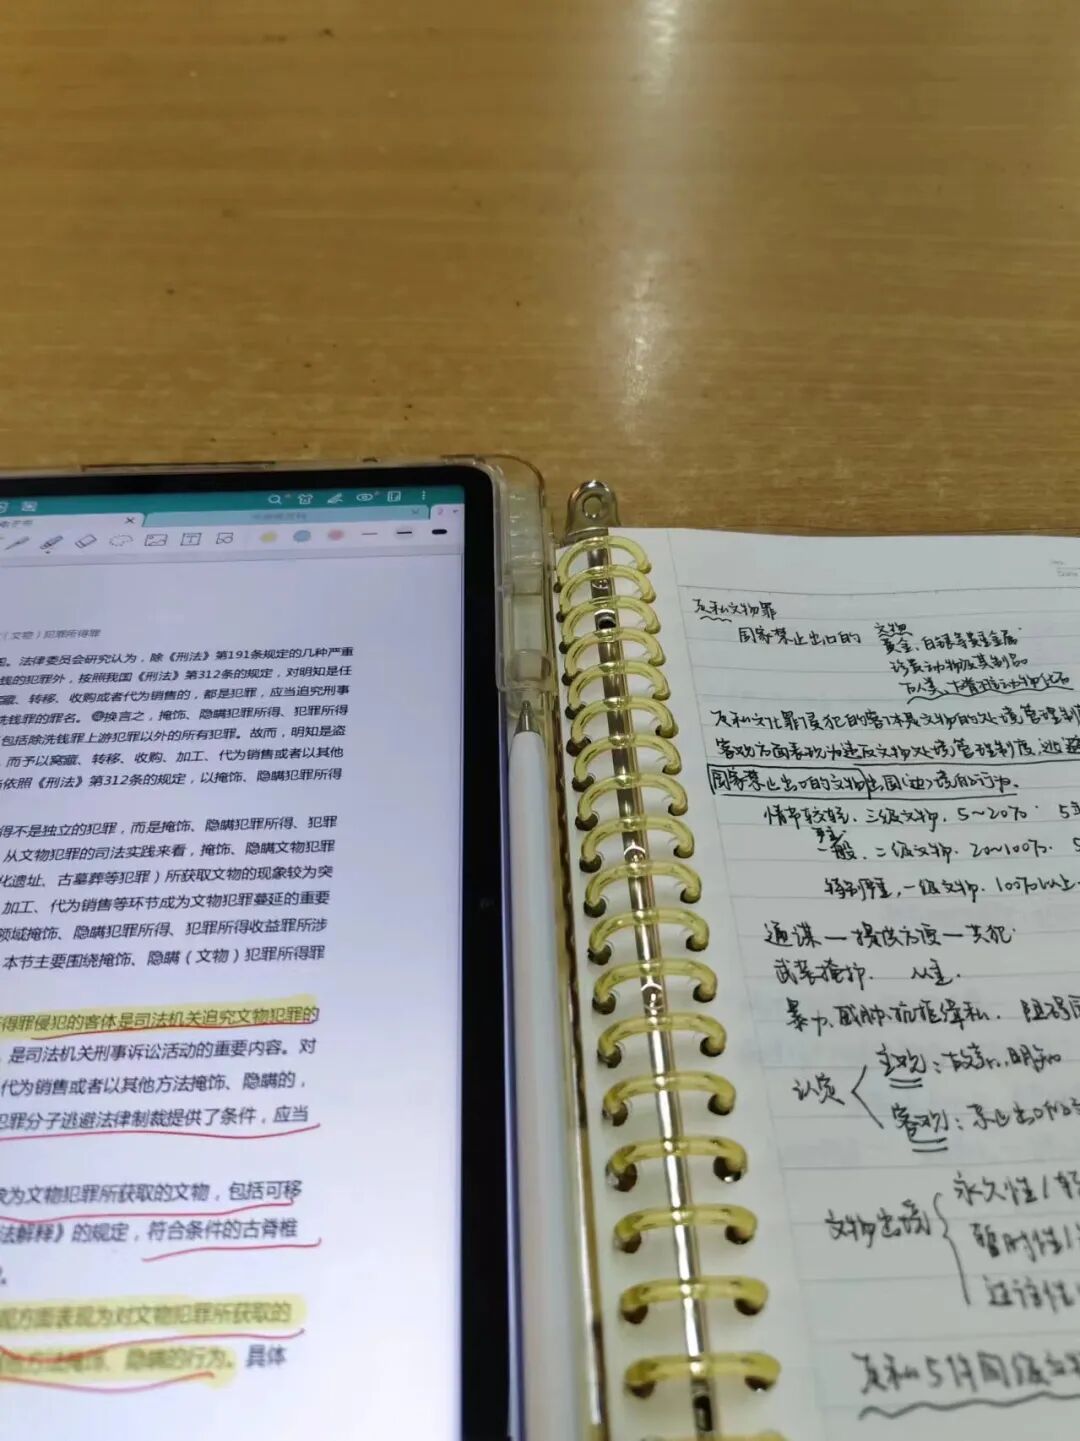 （文物）犯罪所得罪
。法律委员会研究认为，除《刑法》第191条规定的几种严重
钱的犯罪外，按照我国《刑法》第312条的规定，对明知是任
窝藏、转移、收购或者代为销售的，都是犯罪，应当追究刑事
洗钱罪的罪名。换言之，掩饰、隐瞒犯罪所得、犯罪所得
包括除洗钱罪上游犯罪以外的所有犯罪。故而，明知是盗
，而予以窝藏、转移、收购、加工、代为销售或者以其他
依照《刑法》第312条的规定，以掩饰、隐瞒犯罪所得
得不是独立的犯罪，而是掩饰、隐瞒犯罪所得、犯罪
从文物犯罪的司法实践来看，掩饰、隐瞒文物犯罪
化遗址、古墓葬等犯罪）所获取文物的现象较为突
加工、代为销售等环节成为文物犯罪蔓延的重要
领域掩饰、隐瞒犯罪所得、犯罪所得收益罪所涉
本节主要围绕掩饰、隐瞒（文物）犯罪所得罪
得罪侵犯的客体是司法机关追究文物犯罪的
，是司法机关刑事诉讼活动的重要内容。对
代为销售或者以其他方法掩饰、隐瞒的，
犯罪分子逃避法律制裁提供了条件，应当
为文物犯罪所获取的文物，包括可移
法解释》的规定，符合条件的古脊椎
观方面表现为对文物犯罪所获取的
方法掩饰、隐瞒的行为。具体
走私文物罪
国家禁止出口的 文物
黄金、白银等贵重金属
珍贵动物及其制品
古人类、古脊椎动物化石
走私文化罪侵犯的客体是文物的处境管理制
客观方面表现为违反文物处境管理制度，逃避
国家禁止出口的文物出国(边)境的行为.
情节较轻、三级文物、5~20万 5年
一般、二级文物. 20~100万. 5
特别严重，一级文物. 100万以上
通谋—提供方便—共犯
武装掩护. 从重.
暴力、威胁、抗拒缉私. 阻碍
认定
主观：故意，明知
客观：禁止出口
文物出境
永久性/
暂时性/
过境性
走私5件同级文物